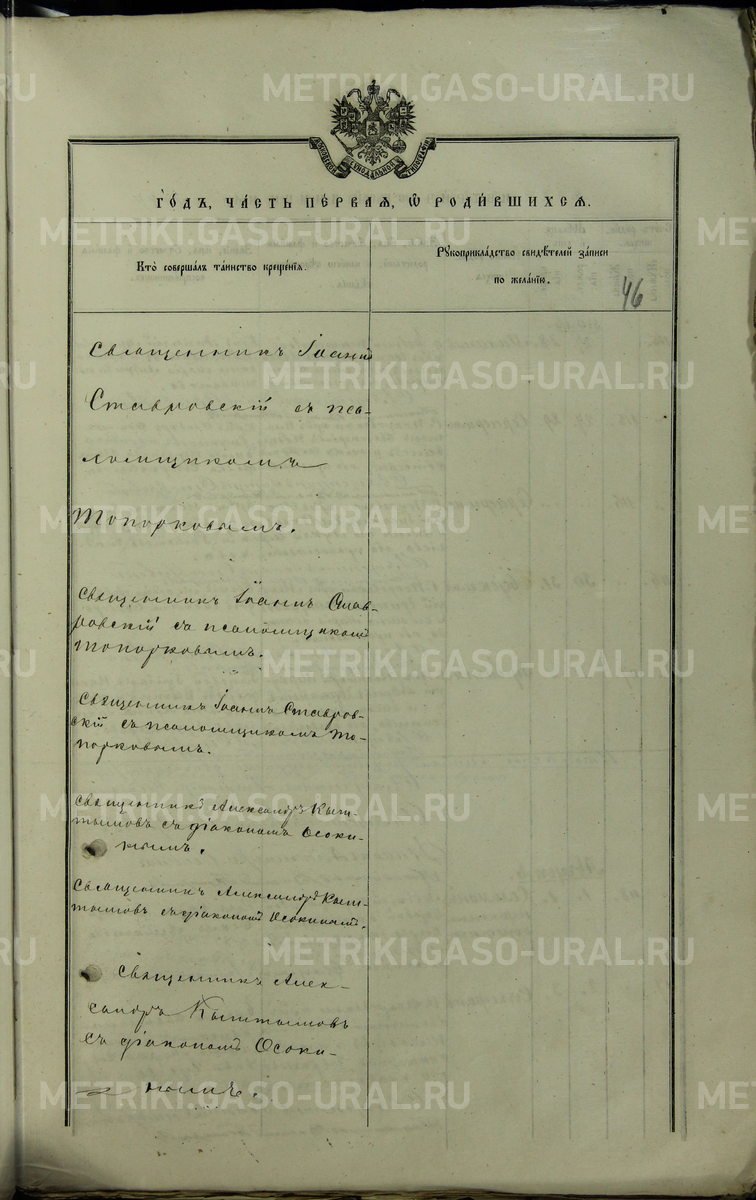 METRIKI.GASO-URAL.RU
СѴНОДАЛЬНОЙ
ГО́ДЪ, ЧА́СТЬ ПЕ́РВАѦ, Ѡ҆ РОДИ́ВШИХСѦ.
Кто̀ соверша́лъ та́инство креще́нїѧ.
Рꙋкоприкла́дство свидѣ́телей за́писи
по жела́нїю.
46
Священникъ Іоаннъ
Ставровскій съ пса-
ломщикомъ
Топорковымъ.
Священникъ Іоаннъ Став-
ровскій съ псаломщикомъ
Топорковымъ.
Священникъ Іоаннъ Ставров-
скій съ псаломщикомъ То-
порковымъ.
Священникъ Александръ Кыш-
тымовъ съ діакономъ Осоки-
нымъ.
Священникъ Александръ Кыш-
тымовъ съ діакономъ Осокинымъ.
Священникъ Алек-
сандръ Кыштымовъ
съ діакономъ Осоки-
нымъ.